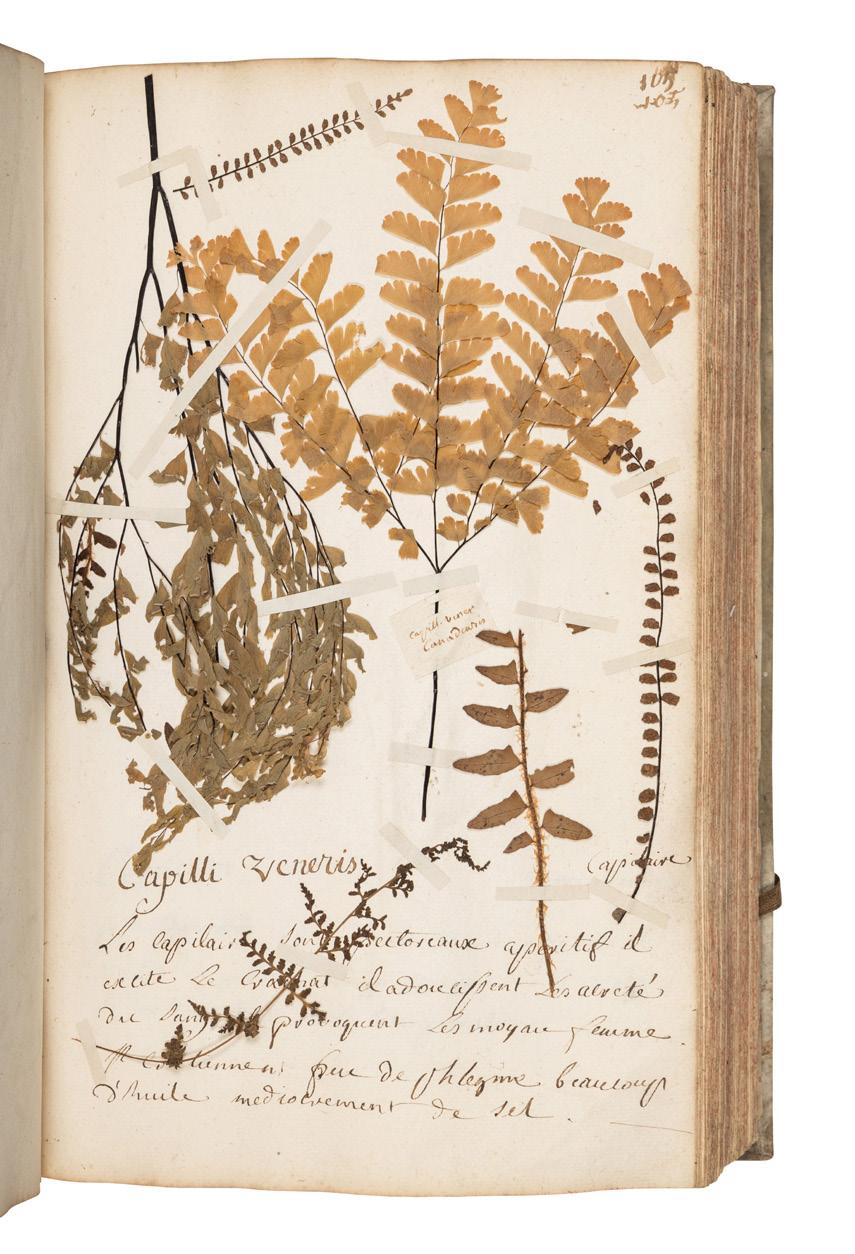 105
103
Capill. vener
Canadensis
Capilli Veneris
Capilaire
Les Capilaires Sont pectoreaux aperitif il
exite Le Crachat il adoucissent Les acreté
du Sang il provoquent Les moyau femme
Il Contiennent peu de phlegme beaucoup
d'huile mediocrement de sel .